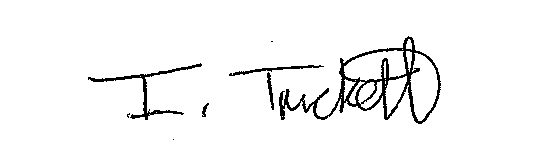 I. Truckett